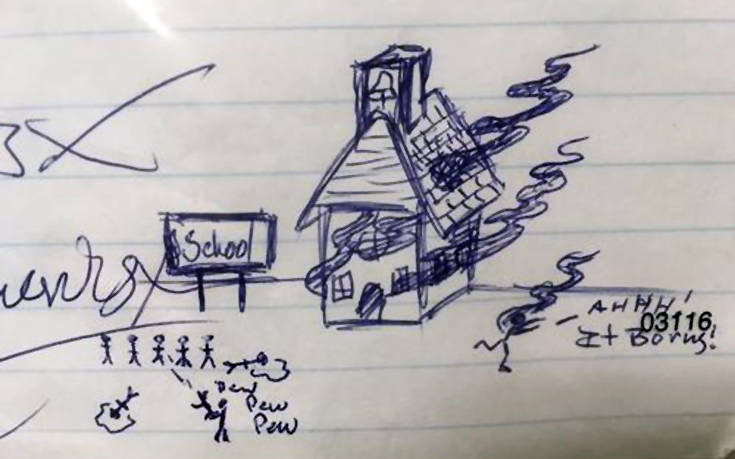 3x
School
AHHH!
03116
It Borns!
Pew
Pew
Pew